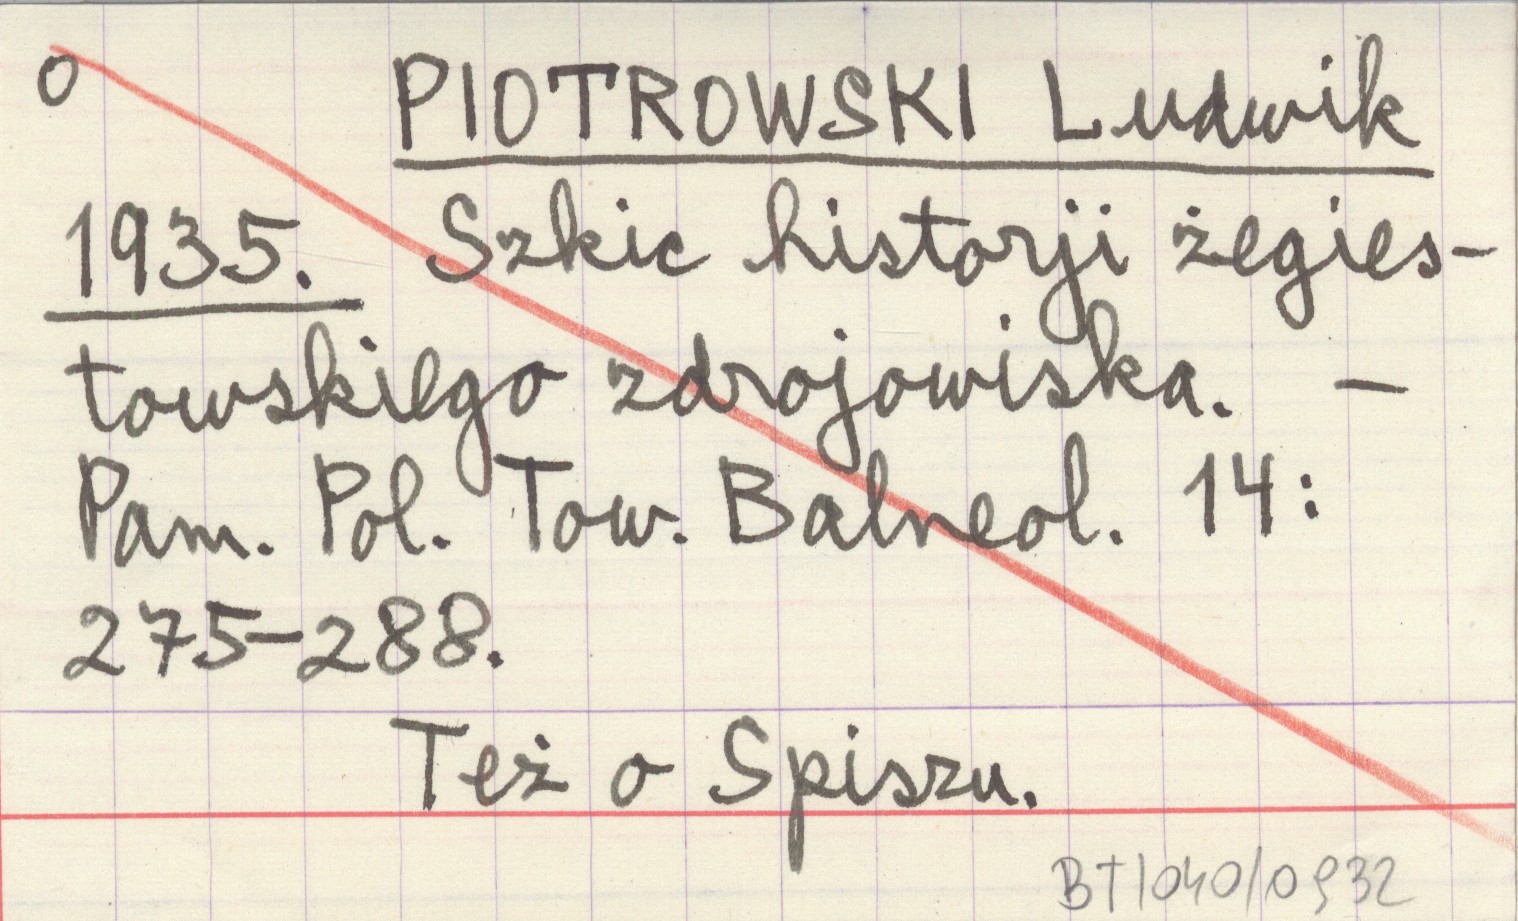 o PIOTROWSKI Ludwik
1935. Szkic historji żegies-
towskiego zdrojowiska. –
Pam. Pol. Tow. Balneol. 14:
275-288.
Też o Spiszu.
BT/040/0932